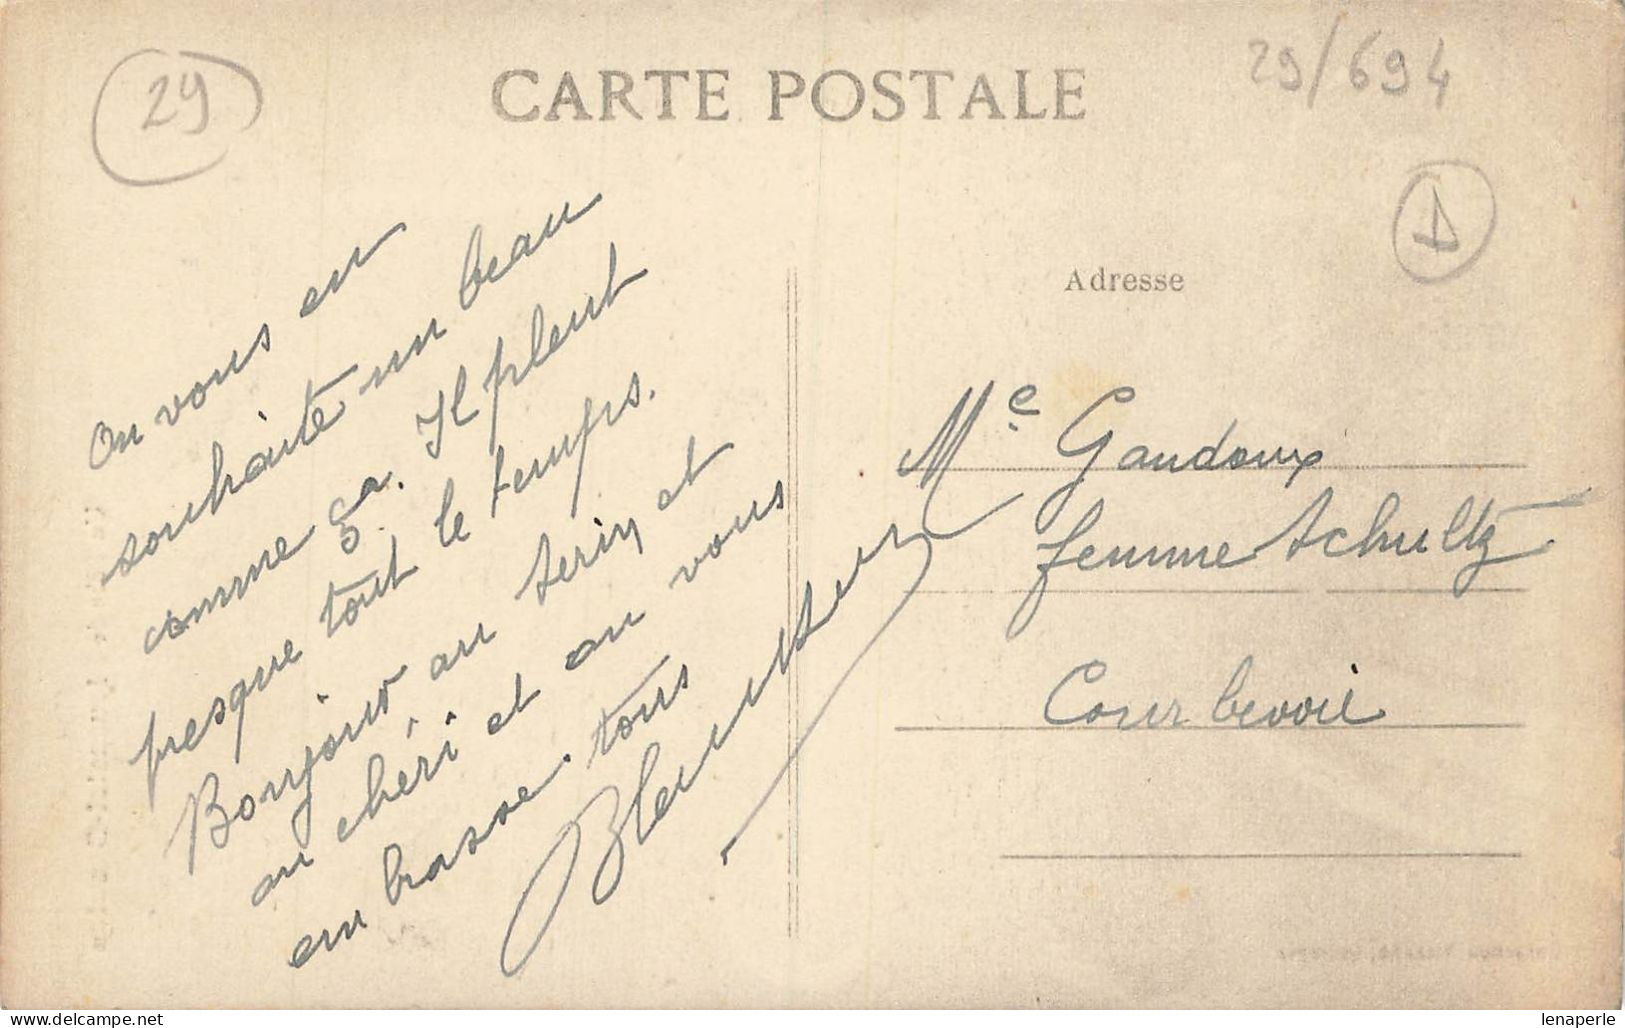 29
CARTE POSTALE
29/694
D
Adresse
On vous en
souhaite un beau
comme ça. Il pleut
presque tout le temps.
Bonjour au serin et
au chéri et on vous
embrasse tous
Me Gandoux
femme Schultz
Courbevoie
lenaperle